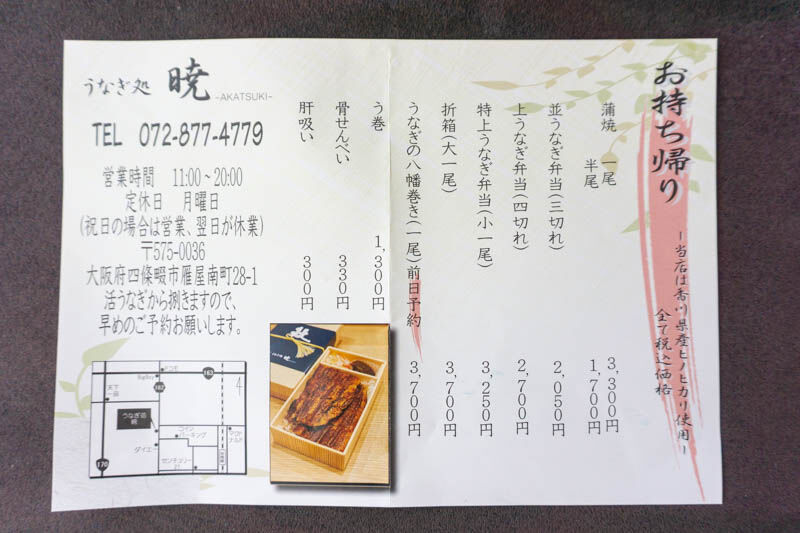 お持ち帰り
ー当店は香川県産ヒノヒカリ使用ー
全て税込価格
蒲焼 一尾 3,300円
半尾 1,700円
並うなぎ弁当(三切れ) 2,050円
上うなぎ弁当(四切れ) 2,700円
特上うなぎ弁当(小一尾) 3,250円
折箱(大一尾) 3,700円
うなぎの八幡巻き(一尾)前日予約 3,700円
う巻 1,300円
骨せんべい 330円
肝吸い 300円
うなぎ処 暁
-AKATSUKI-
TEL 072-877-4779
営業時間 11:00~20:00
定休日 月曜日
(祝日の場合は営業、翌日が休業)
〒575-0036
大阪府四條畷市雁屋南町28-1
活うなぎから捌きますので、
早めのご予約お願いします。
ドコモ
BigBoy
163
162
天下一品
うなぎ処
暁
コイン
パーキング
マクドナルド
ダイエー
センチュリー
21
170